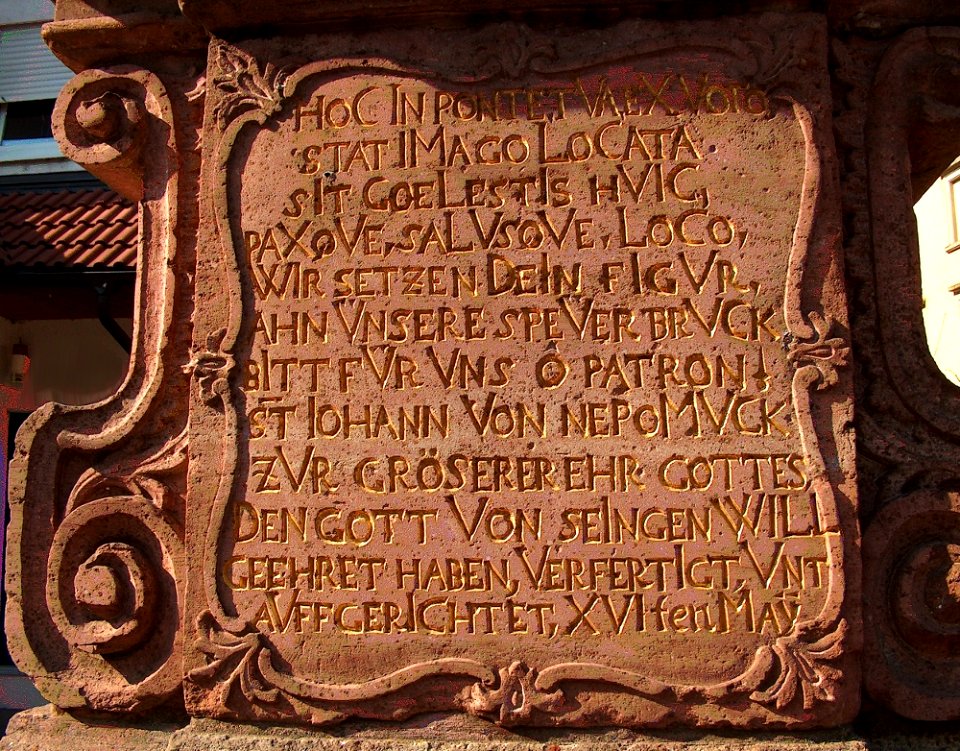 HOC IN PONTE TVA EX VOTO
STAT IMAGO LOCATA
SIT COELESTIS HVIC,
PAXQVE, SALVSQVE, LOCO,
WIR SETZEN DEIN FIGVR,
AHN VNSERE SPEVER BRVCK
BITT FVR VNS O PATRON
ST IOHANN VON NEPOMVCK
ZVR GRÖSERER EHR GOTTES
DEN GOTT VON SEINGEN WILL
GEEHRET HABEN, VERFERTIGT, VNT
AVFFGERICHTET, XVIten MAÿ